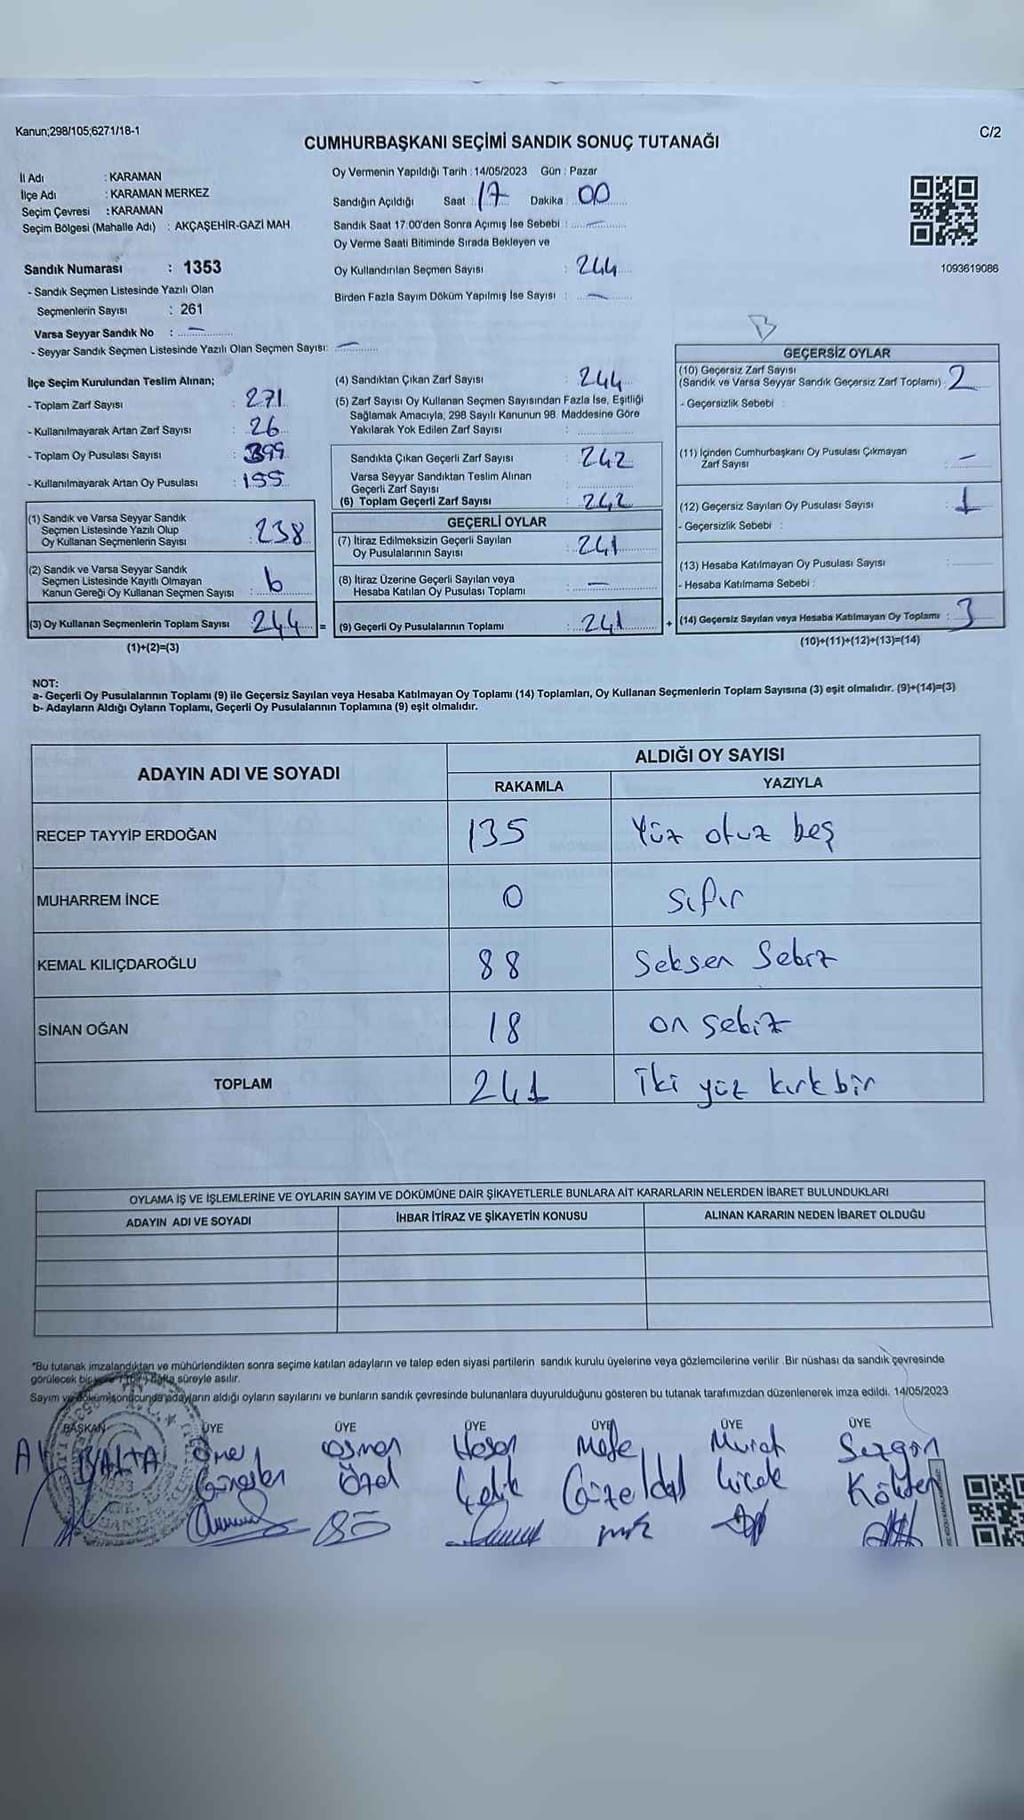 Kanun;298/105;6271/18-1
C/2
CUMHURBAŞKANI SEÇİMİ SANDIK SONUÇ TUTANAĞI
İl Adı : KARAMAN
İlçe Adı : KARAMAN MERKEZ
Seçim Çevresi : KARAMAN
Seçim Bölgesi (Mahalle Adı) : AKÇAŞEHİR-GAZİ MAH
Sandık Numarası : 1353
- Sandık Seçmen Listesinde Yazılı Olan
Seçmenlerin Sayısı : 261
Varsa Seyyar Sandık No : —
- Seyyar Sandık Seçmen Listesinde Yazılı Olan Seçmen Sayısı: —
Oy Vermenin Yapıldığı Tarih : 14/05/2023 Gün : Pazar
Sandığın Açıldığı Saat : 17 Dakika : 00
Sandık Saat 17.00'den Sonra Açımış İse Sebebi : —
Oy Verme Saati Bitiminde Sırada Bekleyen ve
Oy Kullandırılan Seçmen Sayısı : 244
Birden Fazla Sayım Döküm Yapılmış İse Sayısı : —
1093619086
B
İlçe Seçim Kurulundan Teslim Alınan;
- Toplam Zarf Sayısı : 271
- Kullanılmayarak Artan Zarf Sayısı : 26
- Toplam Oy Pusulası Sayısı : 399
- Kullanılmayarak Artan Oy Pusulası : 155
(1) Sandık ve Varsa Seyyar Sandık
Seçmen Listesinde Yazılı Olup
Oy Kullanan Seçmenlerin Sayısı : 238
(2) Sandık ve Varsa Seyyar Sandık
Seçmen Listesinde Kayıtlı Olmayan
Kanun Gereği Oy Kullanan Seçmen Sayısı : 6
(3) Oy Kullanan Seçmenlerin Toplam Sayısı 244 =
(1)+(2)=(3)
(4) Sandıktan Çıkan Zarf Sayısı : 244
(5) Zarf Sayısı Oy Kullanan Seçmen Sayısından Fazla İse, Eşitliği
Sağlamak Amacıyla, 298 Sayılı Kanunun 98. Maddesine Göre
Yakılarak Yok Edilen Zarf Sayısı :
Sandıkta Çıkan Geçerli Zarf Sayısı : 242
Varsa Seyyar Sandıktan Teslim Alınan
Geçerli Zarf Sayısı :
(6) Toplam Geçerli Zarf Sayısı : 242
GEÇERLİ OYLAR
(7) İtiraz Edilmeksizin Geçerli Sayılan
Oy Pusulalarının Sayısı : 241
(8) İtiraz Üzerine Geçerli Sayılan veya
Hesaba Katılan Oy Pusulası Toplamı : —
(9) Geçerli Oy Pusulalarının Toplamı : 241 +
GEÇERSİZ OYLAR
(10) Geçersiz Zarf Sayısı
(Sandık ve Varsa Seyyar Sandık Geçersiz Zarf Toplamı) : 2
- Geçersizlik Sebebi :
(11) İçinden Cumhurbaşkanı Oy Pusulası Çıkmayan
Zarf Sayısı : —
(12) Geçersiz Sayılan Oy Pusulası Sayısı : 1
- Geçersizlik Sebebi :
(13) Hesaba Katılmayan Oy Pusulası Sayısı :
- Hesaba Katılmama Sebebi :
(14) Geçersiz Sayılan veya Hesaba Katılmayan Oy Toplamı : 3
(10)+(11)+(12)+(13)=(14)
NOT:
a- Geçerli Oy Pusulalarının Toplamı (9) ile Geçersiz Sayılan veya Hesaba Katılmayan Oy Toplamı (14) Toplamları, Oy Kullanan Seçmenlerin Toplam Sayısına (3) eşit olmalıdır. (9)+(14)=(3)
b- Adayların Aldığı Oyların Toplamı, Geçerli Oy Pusulalarının Toplamına (9) eşit olmalıdır.
ADAYIN ADI VE SOYADI ALDIĞI OY SAYISI
RAKAMLA YAZIYLA
RECEP TAYYİP ERDOĞAN 135 Yüz otuz beş
MUHARREM İNCE 0 Sıfır
KEMAL KILIÇDAROĞLU 88 Seksen Sekiz
SİNAN OĞAN 18 on sekiz
TOPLAM 241 İki yüz kırk bir
OYLAMA İŞ VE İŞLEMLERİNE VE OYLARIN SAYIM VE DÖKÜMÜNE DAİR ŞİKAYETLERLE BUNLARA AİT KARARLARIN NELERDEN İBARET BULUNDUKLARI
ADAYIN ADI VE SOYADI İHBAR İTİRAZ VE ŞİKAYETİN KONUSU ALINAN KARARIN NEDEN İBARET OLDUĞU
*Bu tutanak imzalandıktan ve mühürlendikten sonra seçime katılan adayların ve talep eden siyasi partilerin sandık kurulu üyelerine veya gözlemcilerine verilir .Bir nüshası da sandık çevresinde
görülecek bir yere hafta süreyle asılır.
Sayım ve dökümsonucunda adayların aldığı oyların sayılarını ve bunların sandık çevresinde bulunanlara duyurulduğunu gösteren bu tutanak tarafımızdan düzenlenerek imza edildi. 14/05/2023
BAŞKAN ÜYE ÜYE ÜYE ÜYE ÜYE ÜYE
BALTA Ömer Osman Hasan Murat Sezgin
Özel Çelik Güzeldal Çiçek Kökten